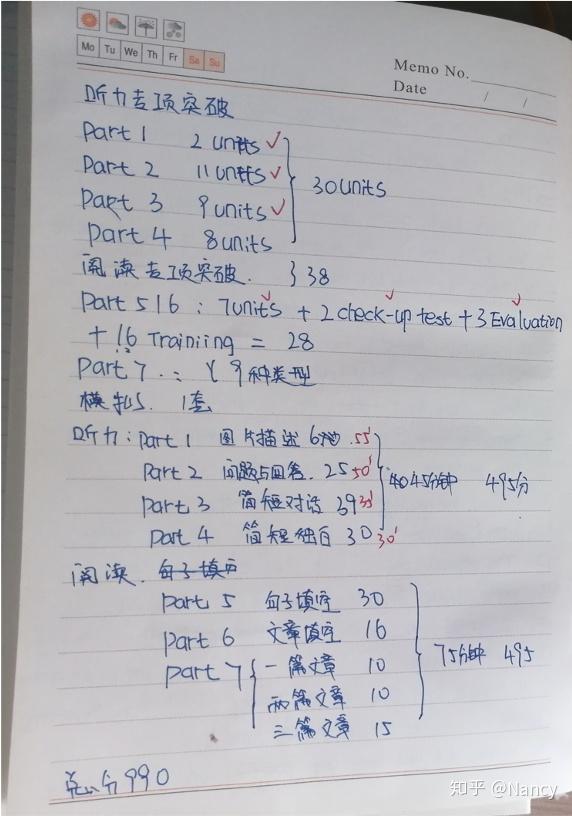 Mo Tu We Th Fr Sa Su
Memo No.
Date / /
听力专项突破
Part 1 2 units ✓
Part 2 11 units ✓
Part 3 9 units ✓
Part 4 8 units
30 units
阅读专项突破. } 38
Part 5 16 : 7units + 2 check-up test + 3 Evaluation
+ 16 Training = 28
Part 7 : 9种类型
模拟 1套
听力: Part 1 图片描述 6 55'
Part 2 问题与回答. 25 50'
Part 3 简短对话 39 35'
Part 4 简短独白 30 30'
45分钟 495分
阅读. 句子填空
Part 5 句子填空 30
Part 6 文章填空 16
Part 7 { 一篇文章 10
两篇文章 10
三篇文章 15
75分钟 495
总分990
知乎 @Nancy